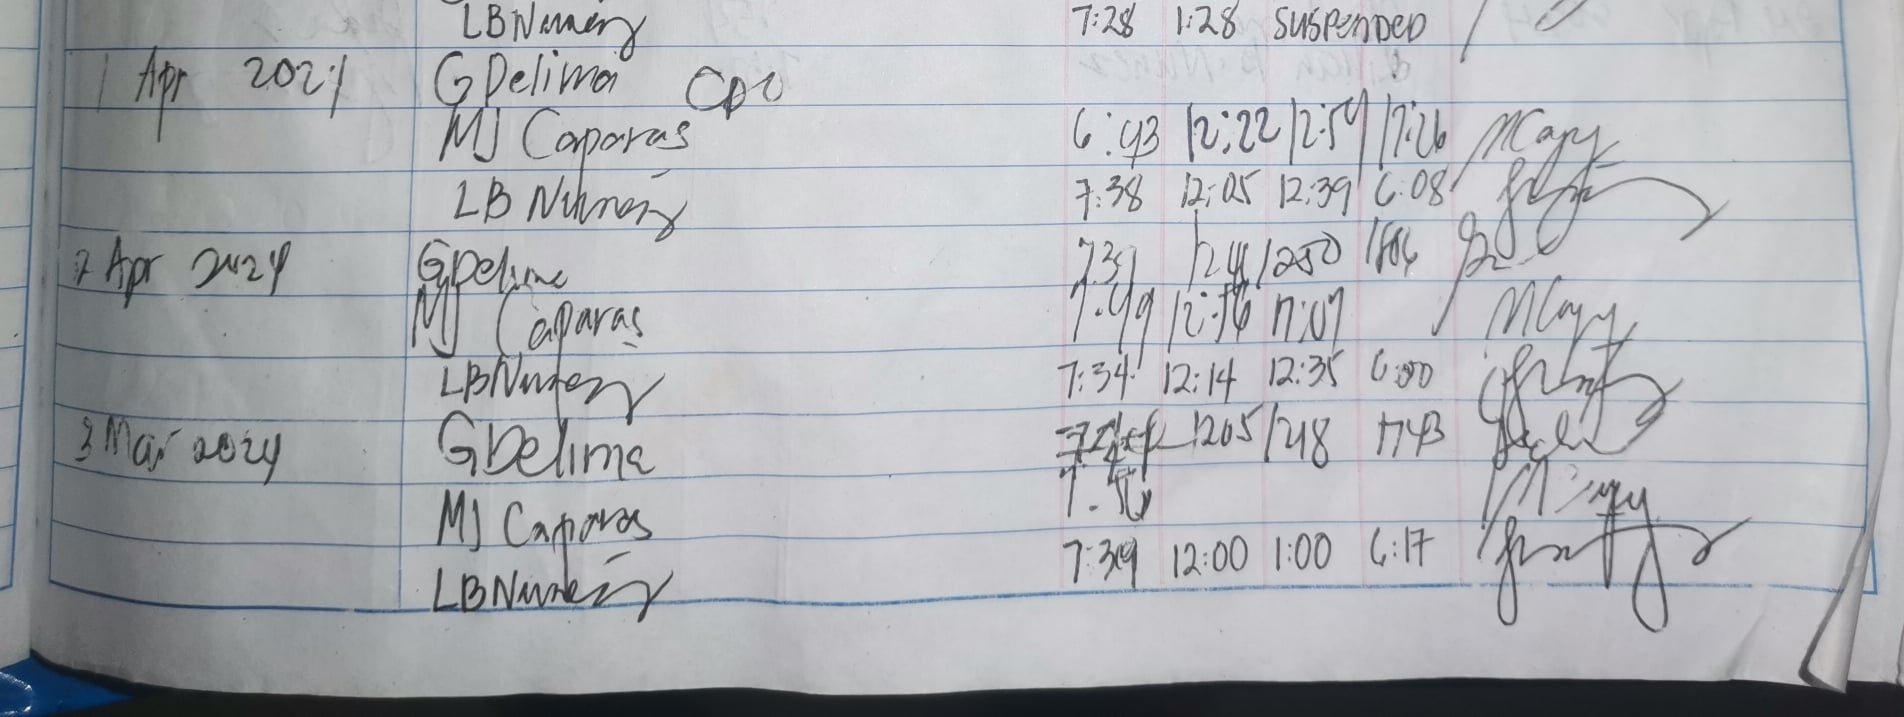 LBNunez 7:28 1:28 SUSPENDED
1 Apr 2024 GDelima CDO
MJ Caparas 6:43 12:22 12:54 17:26
LB Nunez 7:38 12:05 12:39 6:08
2 Apr 2024 GDelima 739 1250
MJ Caparas 7:49 17:07
LBNunez 7:34 12:14 12:35 6:00
3 Mar 2024 GDelima 1205 1248 1743
MJ Caparas
LBNunez 7:39 12:00 1:00 6:17